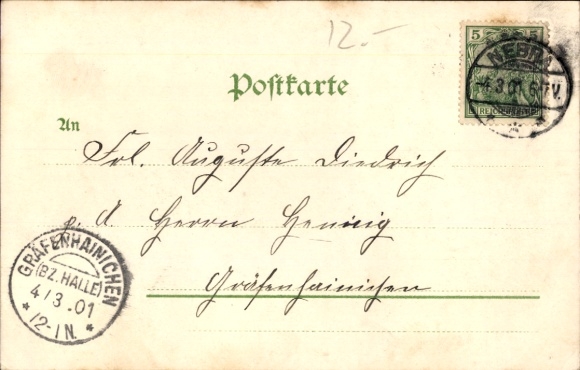 12.-
5
NEBRA
4.3.01.6-7V.
Postkarte
An
Frl. Auguste Diedrich
p. A. Herrn Hennig
Gräfenhainichen
GRÄFENHAINICHEN
(BZ. HALLE)
4/3.01
* 12-1N. *